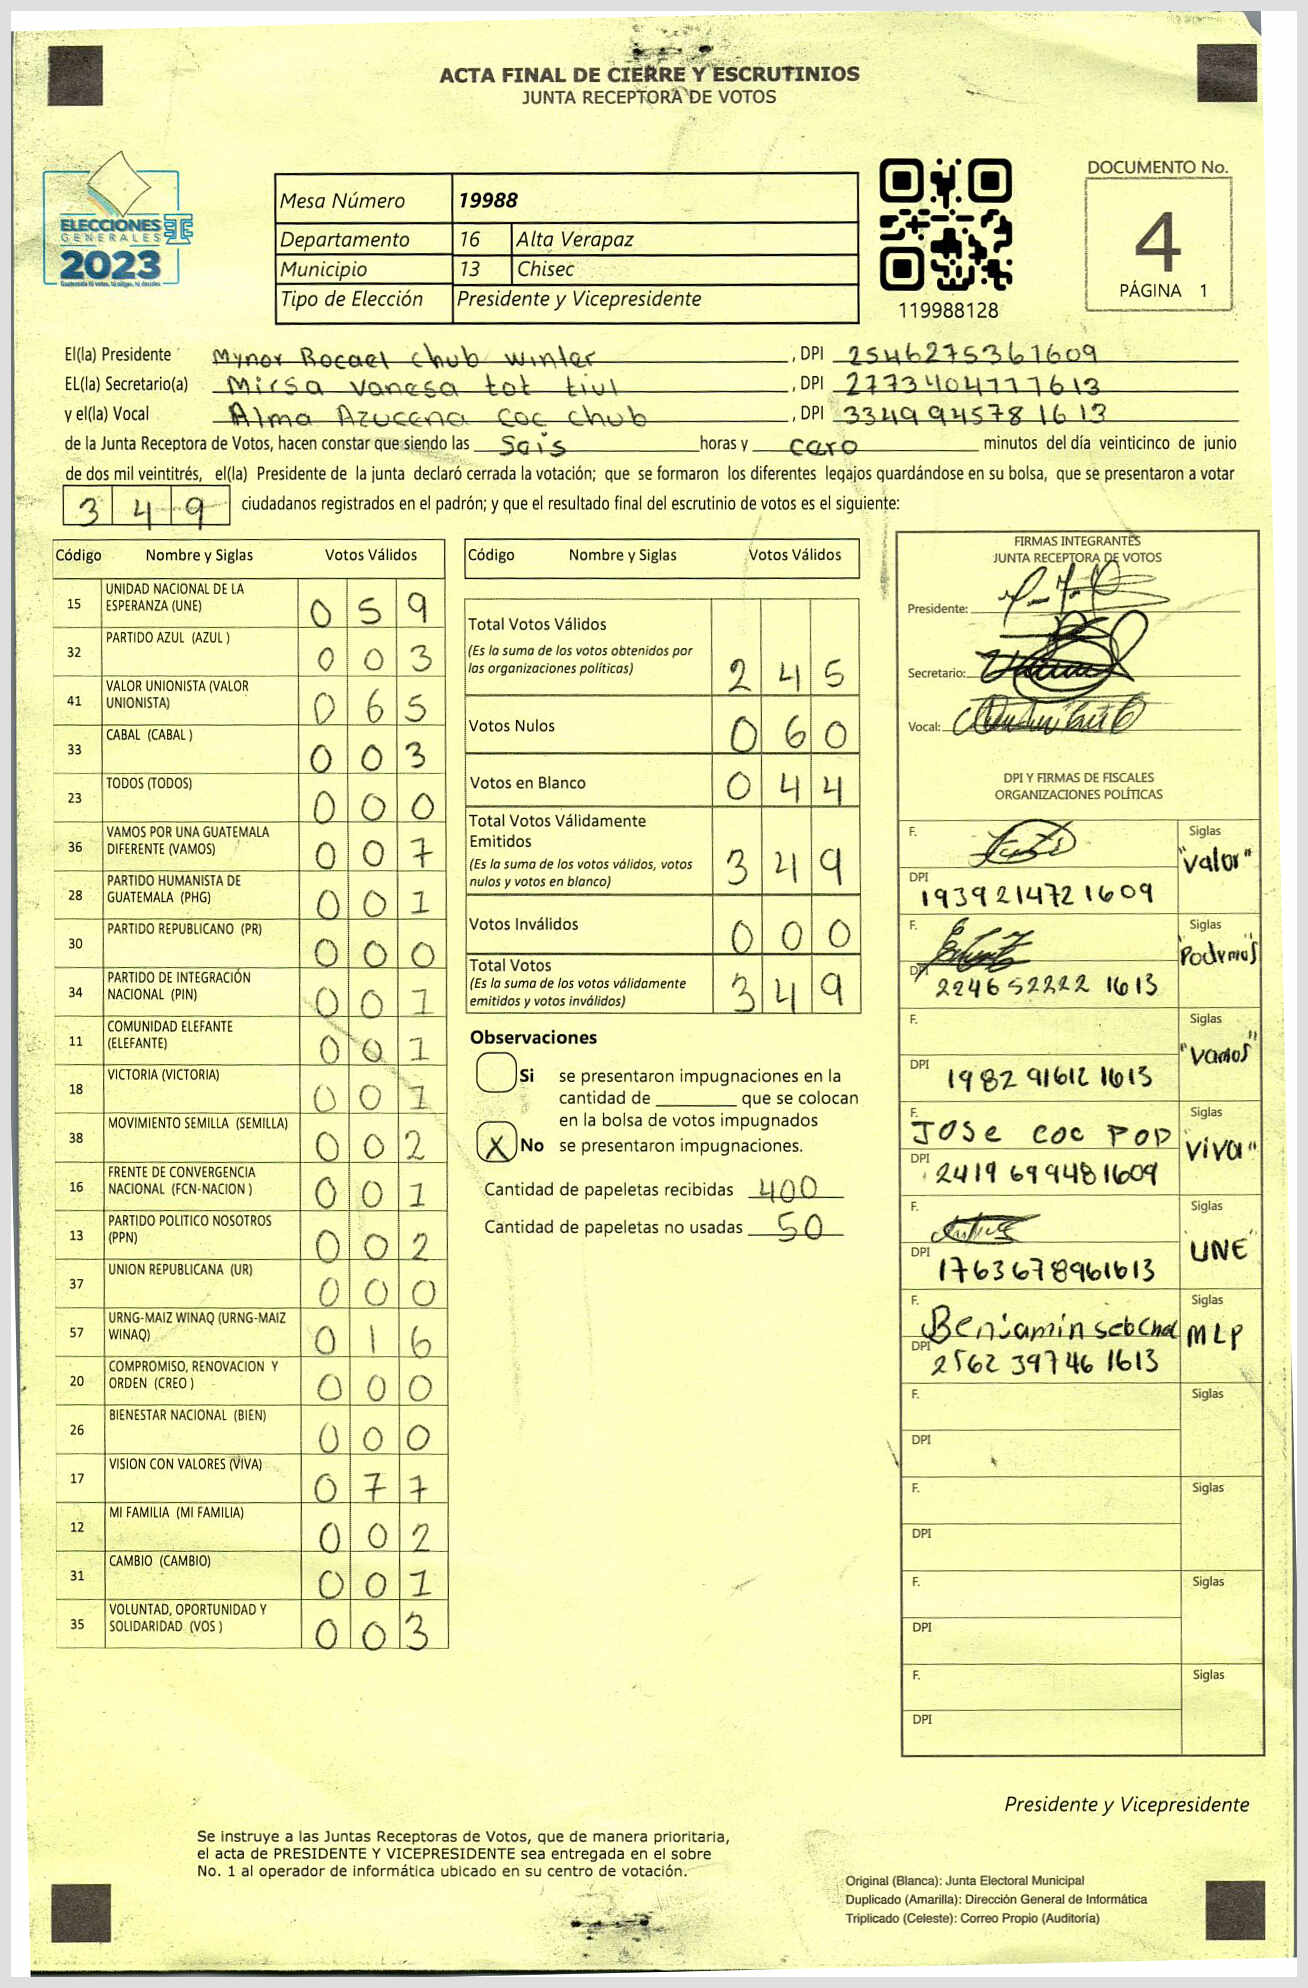 ACTA FINAL DE CIERRE Y ESCRUTINIOS
JUNTA RECEPTORA DE VOTOS
ELECCIONES
GENERALES
2023
Mesa Número 19988
Departamento 16 Alta Verapaz
Municipio 13 Chisec
Tipo de Elección Presidente y Vicepresidente
119988128
DOCUMENTO No.
4
PÁGINA 1
El(la) Presidente Mynor Rocael chub winter, DPI 2546275361609
EL(la) Secretario(a) Mirsa vanesa tot tiul, DPI 2773404777613
y el(la) Vocal Alma Azucena coc chub, DPI 3349945781613
de la Junta Receptora de Votos, hacen constar que siendo las Sais horas y caro minutos del día veinticinco de junio
de dos mil veintitrés, el(la) Presidente de la junta declaró cerrada la votación; que se formaron los diferentes legajos guardándose en su bolsa, que se presentaron a votar
349 ciudadanos registrados en el padrón; y que el resultado final del escrutinio de votos es el siguiente:
Código Nombre y Siglas Votos Válidos
15 UNIDAD NACIONAL DE LA ESPERANZA (UNE) 059
32 PARTIDO AZUL (AZUL ) 003
41 VALOR UNIONISTA (VALOR UNIONISTA) 065
33 CABAL (CABAL ) 003
23 TODOS (TODOS) 000
36 VAMOS POR UNA GUATEMALA DIFERENTE (VAMOS) 007
28 PARTIDO HUMANISTA DE GUATEMALA (PHG) 001
30 PARTIDO REPUBLICANO (PR) 000
34 PARTIDO DE INTEGRACIÓN NACIONAL (PIN) 001
11 COMUNIDAD ELEFANTE (ELEFANTE) 001
18 VICTORIA (VICTORIA) 001
38 MOVIMIENTO SEMILLA (SEMILLA) 002
16 FRENTE DE CONVERGENCIA NACIONAL (FCN-NACION ) 001
13 PARTIDO POLITICO NOSOTROS (PPN) 002
37 UNION REPUBLICANA (UR) 000
57 URNG-MAIZ WINAQ (URNG-MAIZ WINAQ) 016
20 COMPROMISO, RENOVACION Y ORDEN (CREO ) 000
26 BIENESTAR NACIONAL (BIEN) 000
17 VISION CON VALORES (VIVA) 077
12 MI FAMILIA (MI FAMILIA) 002
31 CAMBIO (CAMBIO) 001
35 VOLUNTAD, OPORTUNIDAD Y SOLIDARIDAD (VOS ) 003
Código Nombre y Siglas Votos Válidos
Total Votos Válidos 245
(Es la suma de los votos obtenidos por
las organizaciones políticas)
Votos Nulos 060
Votos en Blanco 044
Total Votos Válidamente
Emitidos 349
(Es la suma de los votos válidos, votos
nulos y votos en blanco)
Votos Inválidos 000
Total Votos 349
(Es la suma de los votos válidamente
emitidos y votos inválidos)
Observaciones
Si se presentaron impugnaciones en la
cantidad de ________ que se colocan
en la bolsa de votos impugnados
X No se presentaron impugnaciones.
Cantidad de papeletas recibidas 400
Cantidad de papeletas no usadas 50
FIRMAS INTEGRANTES
JUNTA RECEPTORA DE VOTOS
Presidente:
Secretario:
Vocal:
DPI Y FIRMAS DE FISCALES
ORGANIZACIONES POLÍTICAS
F. Siglas "valor"
DPI 1939214721609
F. Siglas "Podemos"
DPI 2246522221613
F. Siglas "vamos"
DPI 1982916121613
F. JOSe coc POP Siglas "viva"
DPI 2419699481609
F. Siglas "UNE"
DPI 1763678961613
F. Benjamin seb chal Siglas MLP
DPI 2562397461613
F. Siglas
DPI
F. Siglas
DPI
F. Siglas
DPI
F. Siglas
DPI
Presidente y Vicepresidente
Se instruye a las Juntas Receptoras de Votos, que de manera prioritaria,
el acta de PRESIDENTE Y VICEPRESIDENTE sea entregada en el sobre
No. 1 al operador de informática ubicado en su centro de votación.
Original (Blanca): Junta Electoral Municipal
Duplicado (Amarilla): Dirección General de Informática
Triplicado (Celeste): Correo Propio (Auditoría)